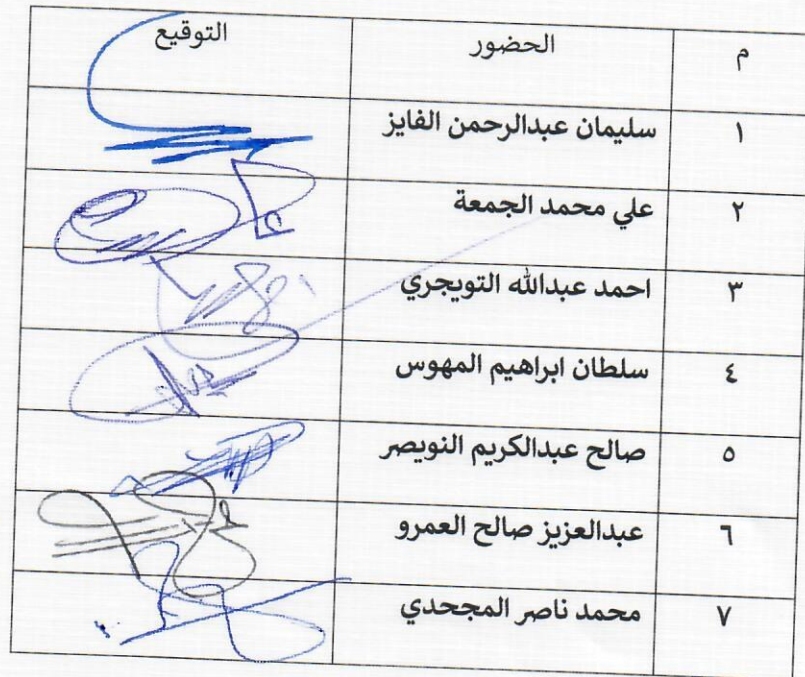 م الحضور التوقيع
١ سليمان عبدالرحمن الفايز
٢ علي محمد الجمعة
٣ احمد عبدالله التويجري
٤ سلطان ابراهيم المهوس
٥ صالح عبدالكريم النويصر
٦ عبدالعزيز صالح العمرو
٧ محمد ناصر المجحدي